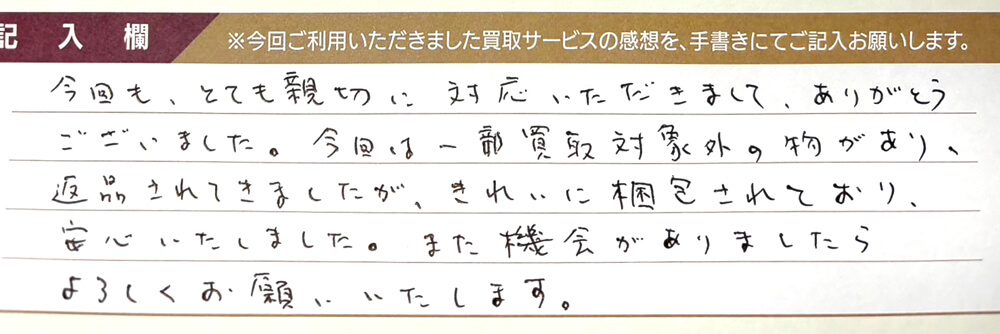 記入欄 ※今回ご利用いただきました買取サービスの感想を、手書きにてご記入お願いします。
今回も、とても親切に対応いただだきまして、ありがとう
ございました。今回は一部買取対象外の物があり、
返品されてきましたが、きれいに梱包されており、
安心いたしました。また機会がありましたら
よろしくお願いいたします。